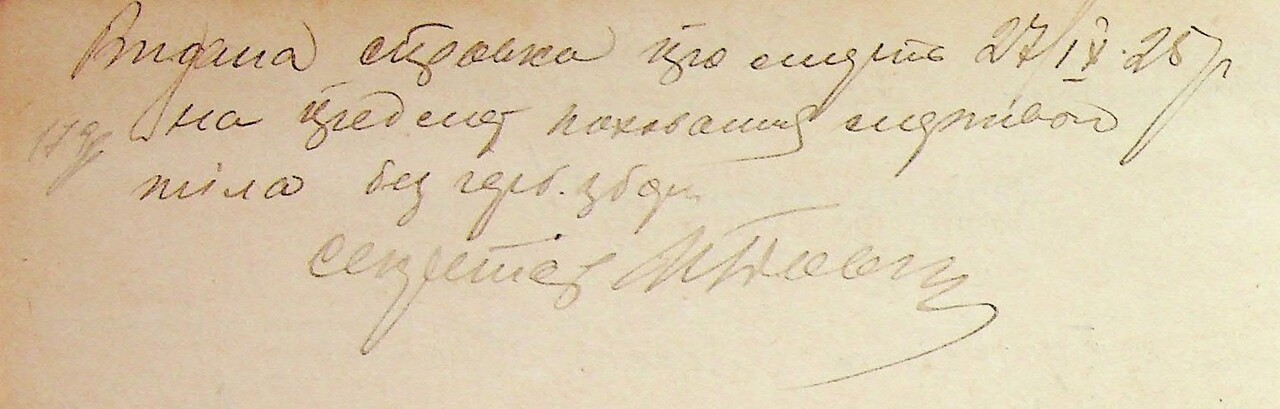 Видана справка про смерть 27/IV 25 р
на предмет поховання мертвого
тіла без герб. збору
секретар